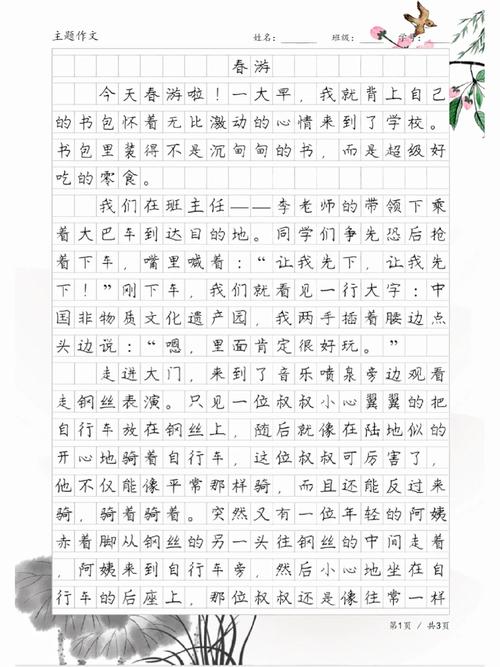 主题作文 姓名： 班级： 学号：
春游
今天春游啦！一大早，我就背上自己
的书包怀着无比激动的心情来到了学校。
书包里装得不是沉甸甸的书，而是超级好
吃的零食。
我们在班主任——李老师的带领下乘
着大巴车到达目的地。同学们争先恐后抢
着下车，嘴里喊着：“让我先下，让我先
下！”刚下车，我们就看见一行大字：中
国非物质文化遗产园，我两手插着腰边点
头边说：“嗯，里面肯定很好玩。”
走进大门，来到了音乐喷泉旁边观看
走钢丝表演。只见一位叔叔小心翼翼的把
自行车放在钢丝上，随后就像在陆地似的
开心地骑着自行车，这位叔叔可厉害了，
他不仅能像平常那样骑，而且还能反过来
骑，骑着骑着。突然又有一位年轻的阿姨
赤着脚从钢丝的另一头往钢丝的中间走着
，阿姨来到自行车旁，然后小心地坐在自
行车的后座上，那位叔叔还是像往常一样
第1页 / 共3页